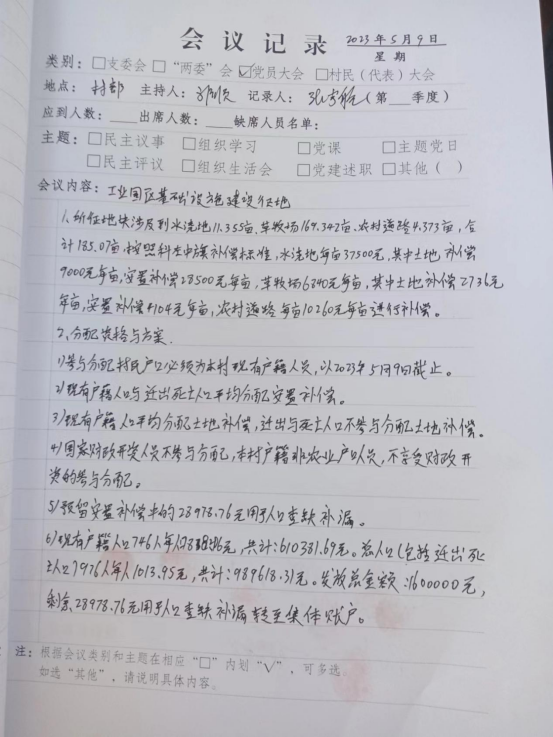 会议记录 2023年5月9日
星期
类别：□支委会 □“两委”会 ☑党员大会 □村民（代表）大会
地点：村部 主持人： 记录人： （第 季度）
应到人数： 出席人数： 缺席人员名单：
主题：□民主议事 □组织学习 □党课 □主题党日
□民主评议 □组织生活会 □党建述职 □其他（ ）
会议内容：工业园区基础设施建设征地
1、所征地块涉及到水浇地11.355亩，草牧场169.342亩，农村道路4.373亩，合
计185.07亩，按照科左中旗补偿标准，水浇地每亩37500元，其中土地补偿
9000元每亩，安置补偿28500元每亩，草牧场6840元每亩，其中土地补偿2736元
每亩，安置补偿4104元每亩，农村道路每亩10260元每亩进行补偿。
2、分配资格与方案.
1)参与分配村民户口必须为本村现有户籍人员，以2023年5月9日截止。
2)现有户籍人口与迁出死亡人口平均分配安置补偿。
3)现有户籍人口平均分配土地补偿，迁出与死亡人口不参与分配土地补偿。
4)国家财政开资人员不参与分配，本村户籍非农业户口人员，不享受财政开
资的参与分配。
5)预留安置补偿中的28978.76元用于人口查缺补漏。
6)现有户籍人口746人每人元，共计：610381.69元。总人口（包括迁出死
亡人口）976人每人1013.95元，共计：989618.31元。发放总金额：1600000元，
剩余28978.76元用于人口查缺补漏转至集体账户。
注：根据会议类别和主题在相应“□”内划“√”，可多选。
如选“其他”，请说明具体内容。